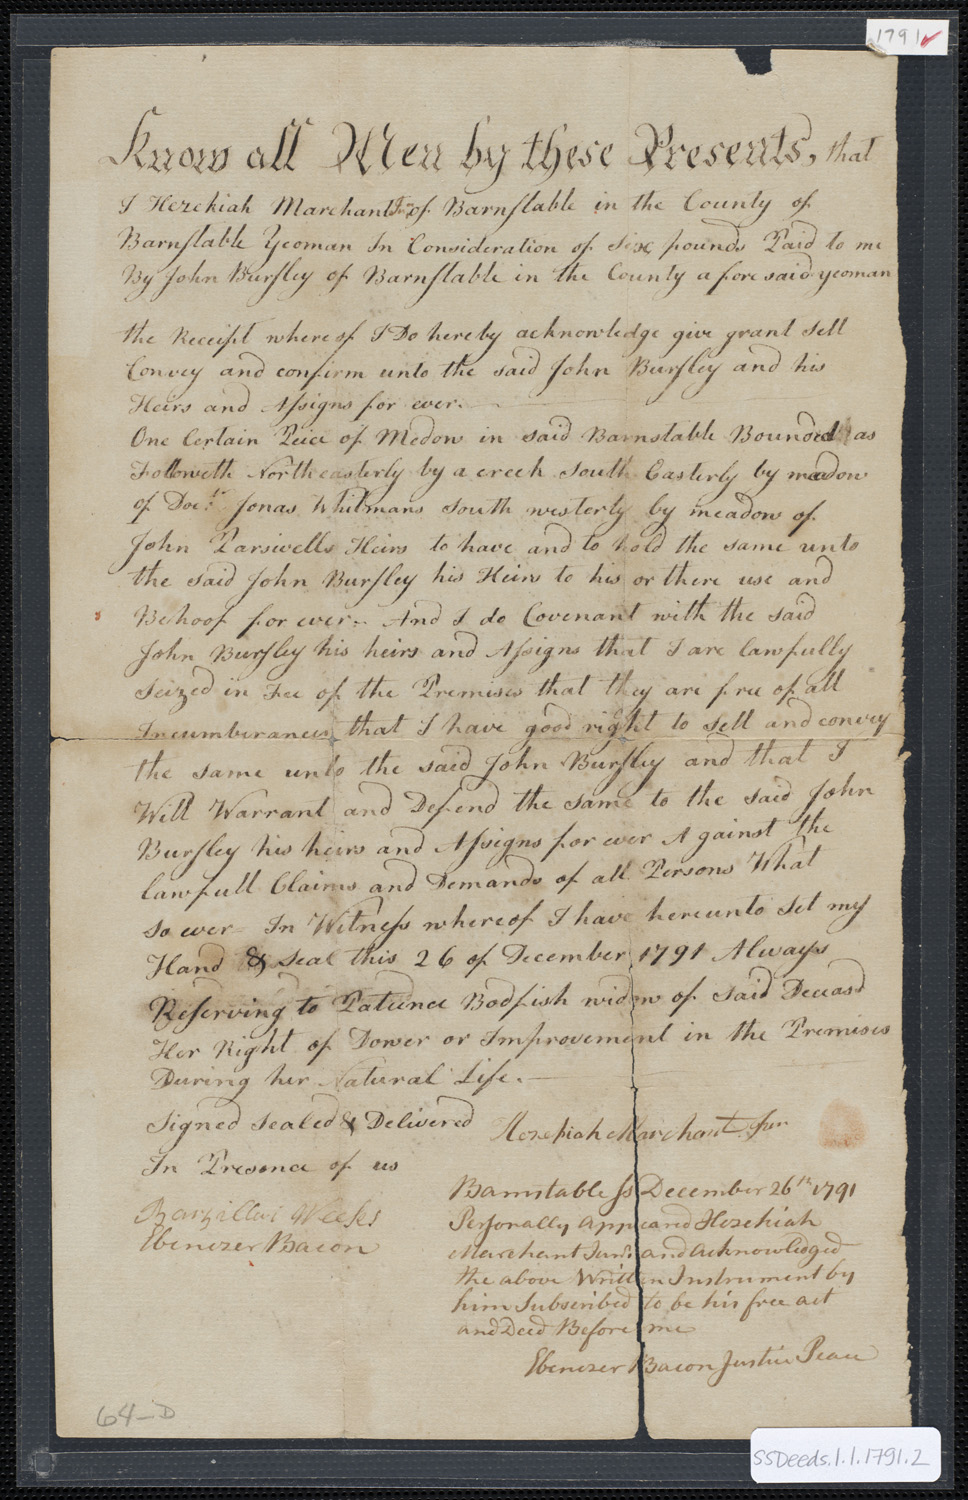 1791
Know all Men by these Presents, that
I Hezekiah Marchant Jnr of Barnstable in the County of
Barnstable Yeoman In Consideration of Six pounds Paid to me
By John Bursley of Barnstable in the County afore said yeoman
the Receipt whereof I Do hereby acknowledge give grant Sell
Convey and confirm unto the said John Bursley and his
Heirs and Assigns for ever.
One Certain Peice of Medow in said Barnstable Bounded as
Followeth Northeasterly by a creek South Easterly by meadow
of Doct. Jonas Whitmans South westerly by meadow of
John Parsivells Heirs to have and to hold the same unto
the said John Bursley his Heirs to his or there use and
Behoof for ever. And I do Covenant with the said
John Bursley his heirs and Assigns that I are lawfully
Seized in Fee of the Premises that they are free of all
Incumberances that I have good right to sell and convey
the same unto the said John Bursley and that I
Will Warrant and Defend the same to the said John
Bursley his heirs and Assigns for ever Against the
lawfull Claims and Demands of all Persons What
so ever In Witness whereof I have hereunto Set my
Hand & Seal this 26 of December 1791 Always
Reserving to Patience Bodfish widow of said Deceasd
Her Right of Dower or Improvement in the Premises
During her Natural Life.
Signed Sealed & Delivered
In Presence of us
Barzillai Weeks
Ebenezer Bacon
Hezekiah Marchant Jun
Barnstable Ss December 26th 1791
Personally appeared Hezekiah
Marchant Junr and acknowledged
the above Written Instrument by
him Subscribed to be his free act
and Deed Before me
Ebenezer Bacon Justice Peace
64-D
SSDeeds.1.1.1791.2